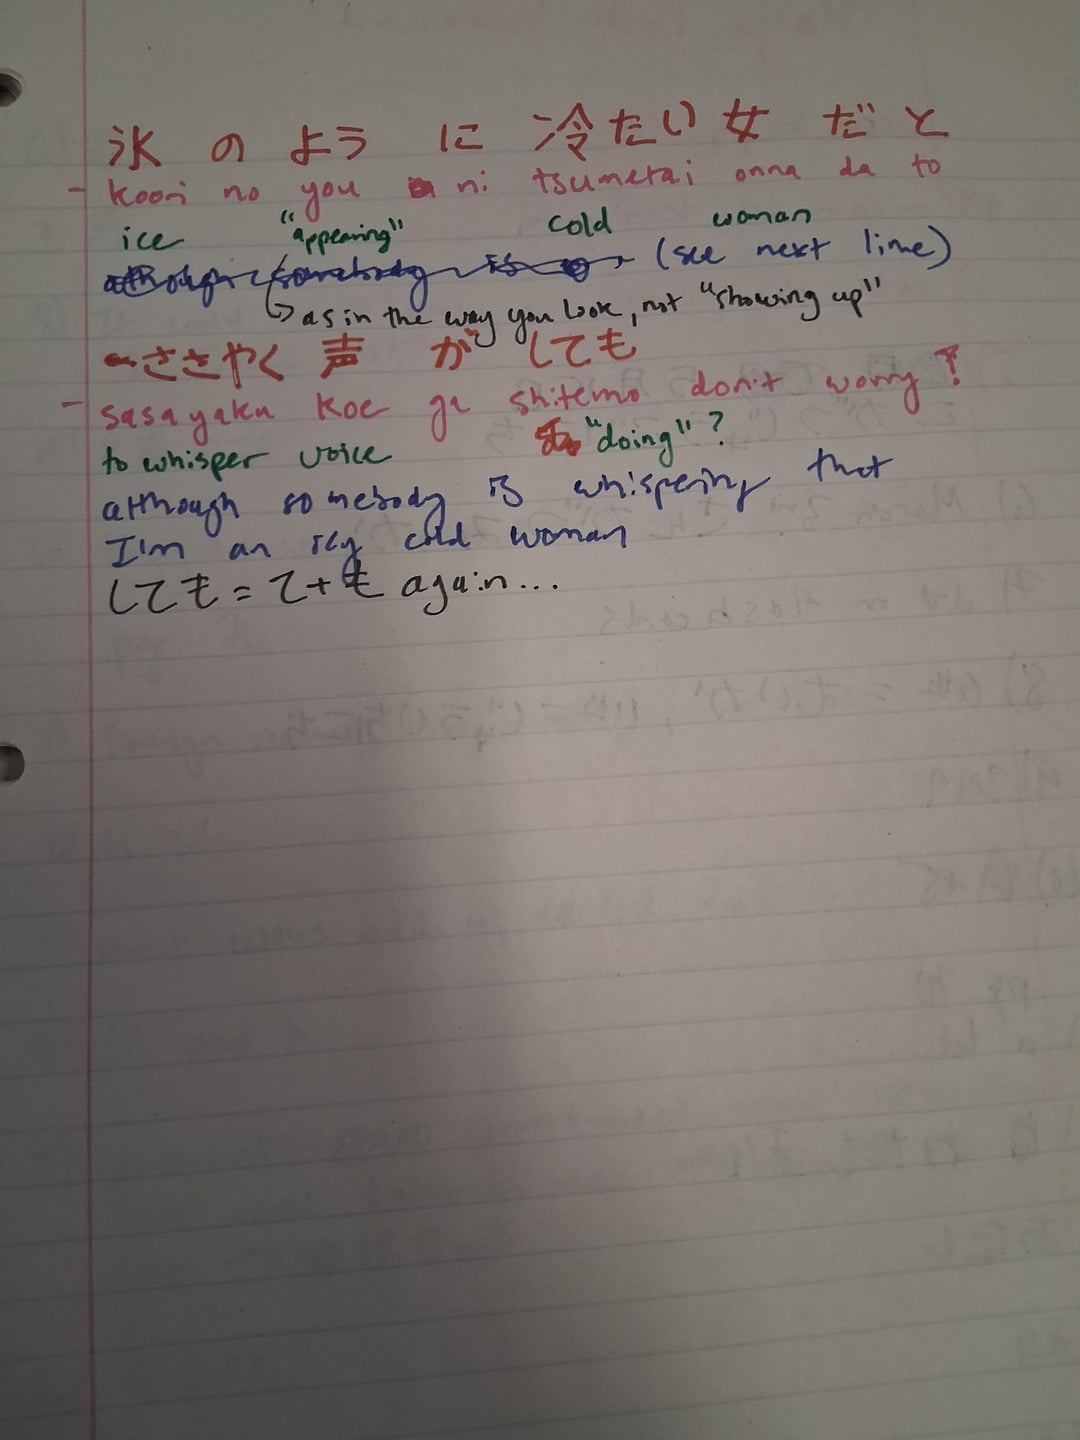 氷のように冷たい女だと
- koori no you ni tsumetai onna da to
ice "appearing" cold woman
although somebody is (see next line)
↳ as in the way you look, not "showing up"
ささやく声がしても
- sasayaku koe ga shitemo don't worry!
to whisper voice "doing"?
although somebody is whispering that
I'm an icy cold woman
しても = て+も again...